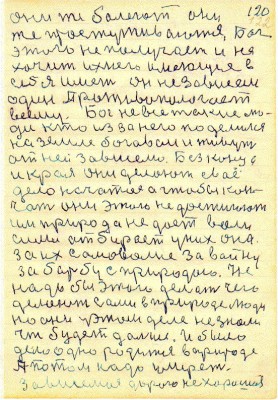 120
они же болеют они
же простуживаются, Бог
этого не получает и не
хочит их него имеющие в
себя имет он независем
один Противополагает
вещи. Бог не все такие лю-
ди кто из за него поделился
на земле богавом и живут
от ней зависемо. Без конца
и края они делают своё
дело начатое а чтобы кон-
чат они этого не достигают
им природа не даёт воли
силы отбирает у них она
за их самоволие За войну
за барбу с природою. Не
надо бы этого делат чего
делают сами в природе люди
но они у этом деле не знали
что будет дальше. И было
дело одно родится в природе
А потом надо умерет.
Зависемая дорога не хорошая